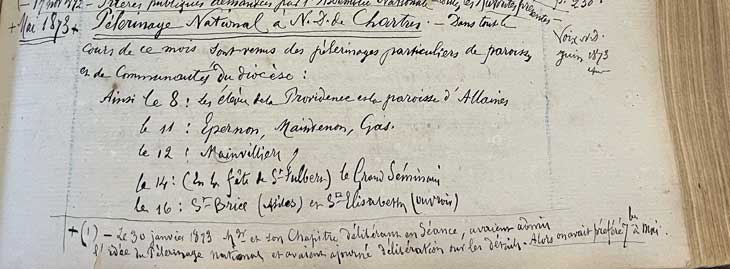 Prières publiques demandées par l'Assemblée Nationale
+ Mai 1873 + Pèlerinage National à N. D. de Chartres. - Dans tout le
cours de ce mois sont venus des pèlerinages particuliers de paroisses
et de Communautés du diocèse :
Voix N.D.
juin 1873
Ainsi le 8 : les élèves de la Providence et la paroisse d'Allaines
le 11 : Epernon, Maintenon, Gas.
le 12 : Mainvilliers
le 14 : (En la fête de St Fulbert) le Grand Séminaire
le 16 : St Brice (Asiles) et Ste Elisabeth (ouvroir)
+ (1) - Le 30 janvier 1873 Mgr et son Chapitre délibérant en Séance, avaient admis
l'idée du Pèlerinage national et avaient ajourné délibération sur les détails. - Alors on avait préféré 2 Mai.